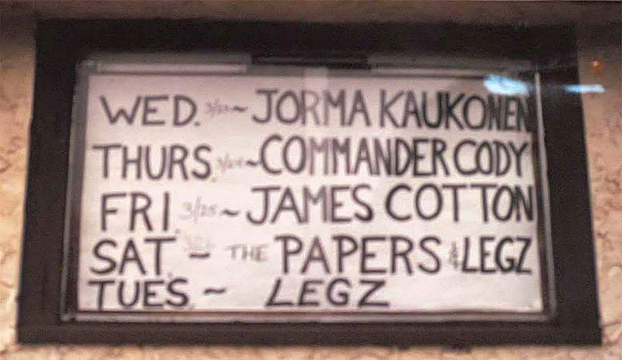 WED. 3/23 ~ JORMA KAUKONEN
THURS. 3/24 ~ COMMANDER CODY
FRI. 3/25 ~ JAMES COTTON
SAT. 3/26 ~ THE PAPERS & LEGZ
TUES. ~ LEGZ